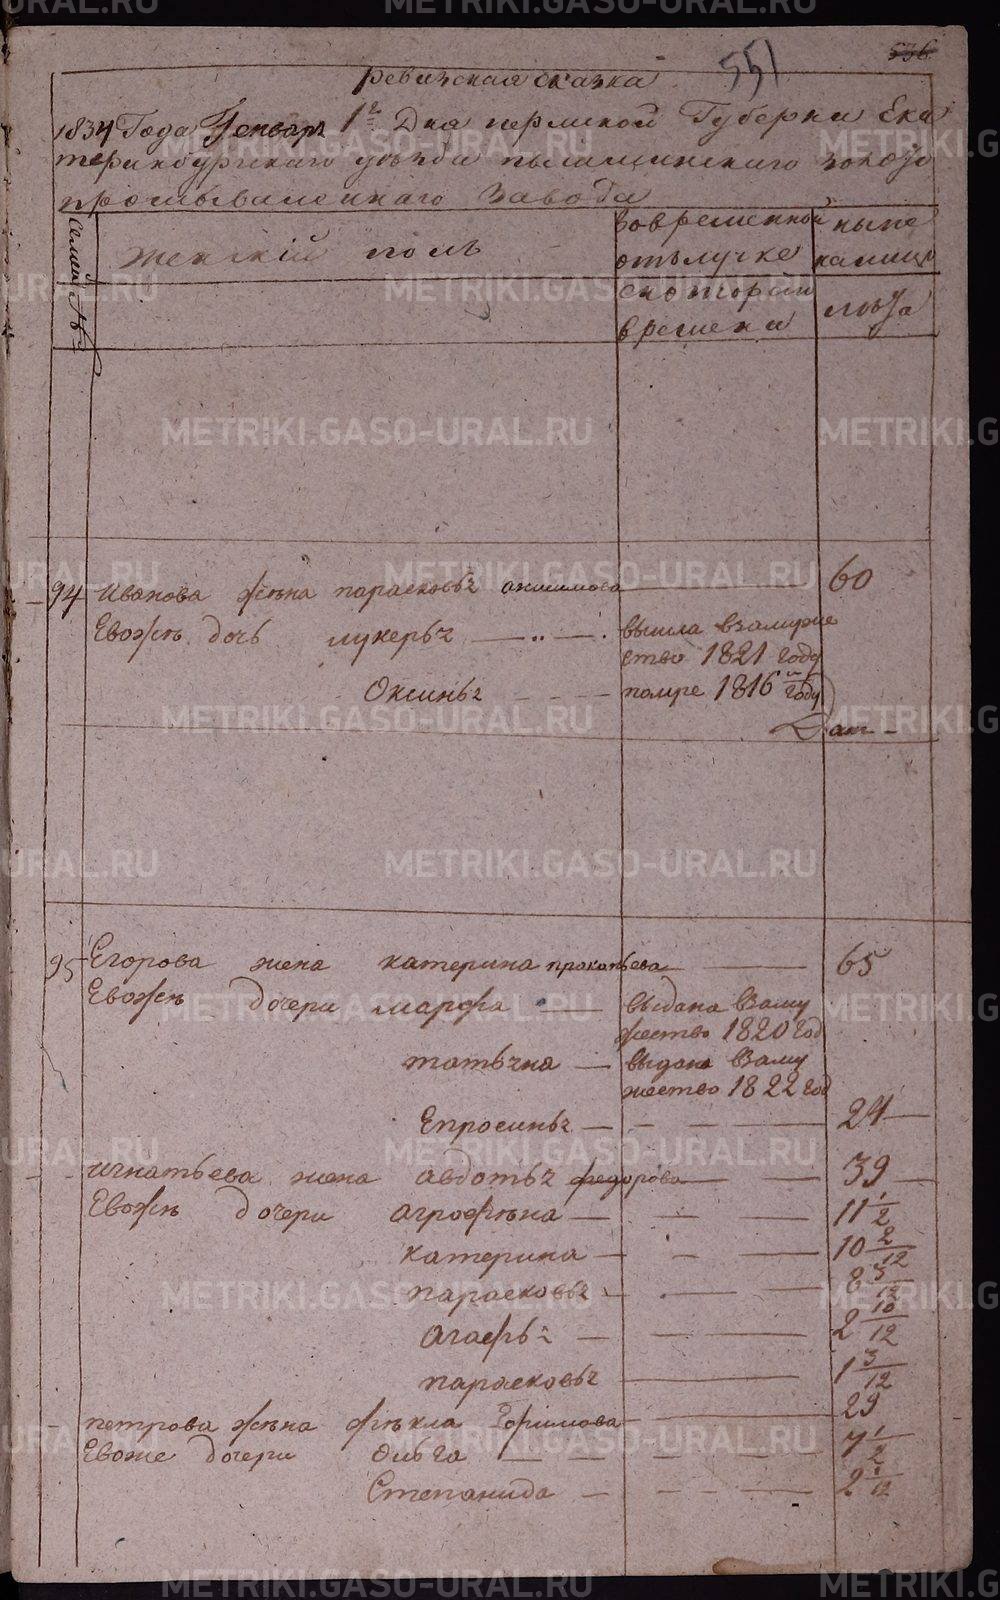 551 536
ревизская сказка
1834 Года Генваря 1го Дня пермской Губерни Ека
теринбургскаго уезда пышминскаго золото
промываленнаго завода
Семей №
женскiй полъ
вовременной
отълучке
скоторой
времени
ныне
налицо
лета
94 Иванова жена парасковья 60
Евожъ дочь лукерья вышла взамуже
ство 1821 году
Оксинья помре 1816 году
95 Егорова жена катерина прокопьева 65
Евожъ дочери марфа выдана Взаму
жество 1820 год
татьяна выдана Взаму
жество 1822 год
Епросинья 24
игнатьева жена авдотья федорова 39
Евожъ дочери агрофена 11 1/2
катерина 10 2/12
парасковья 8 3/12
агафья 2 10/12
парасковья 1 3/12
петрова жена фекла Ефимова 29
Евоже дочери Ольга 7 1/2
Степанида
METRIKI.GASO-URAL.RU